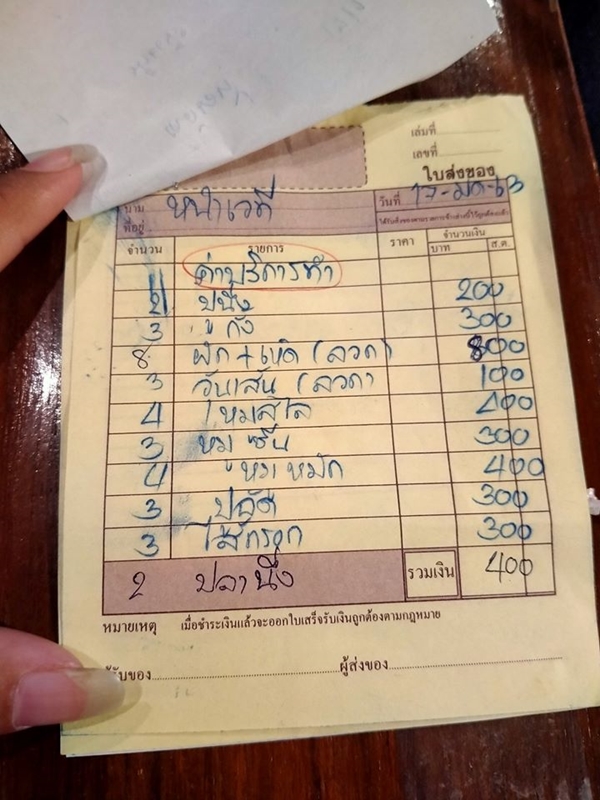 เล่มที่
เลขที่
ใบส่งของ
นาม หน้าเวที วันที่ 17-มค-63
ที่อยู่
จำนวน รายการ ราคา จำนวนเงิน
บาท ส.ต.
ค่าบริการทำ
2 200
3 กุ้ง 300
8 ผัก+เห็ด (ลวก) 800
3 วุ้นเส้น (ลวก) 100
4 400
3 หมู 300
4 หมูหมัก 400
3 300
3 ไส้กรอก 300
2 ปลานึ่ง รวมเงิน 400
หมายเหตุ เมื่อชำระเงินแล้วจะออกใบเสร็จรับเงินถูกต้องตามกฎหมาย
ผู้ส่งของ